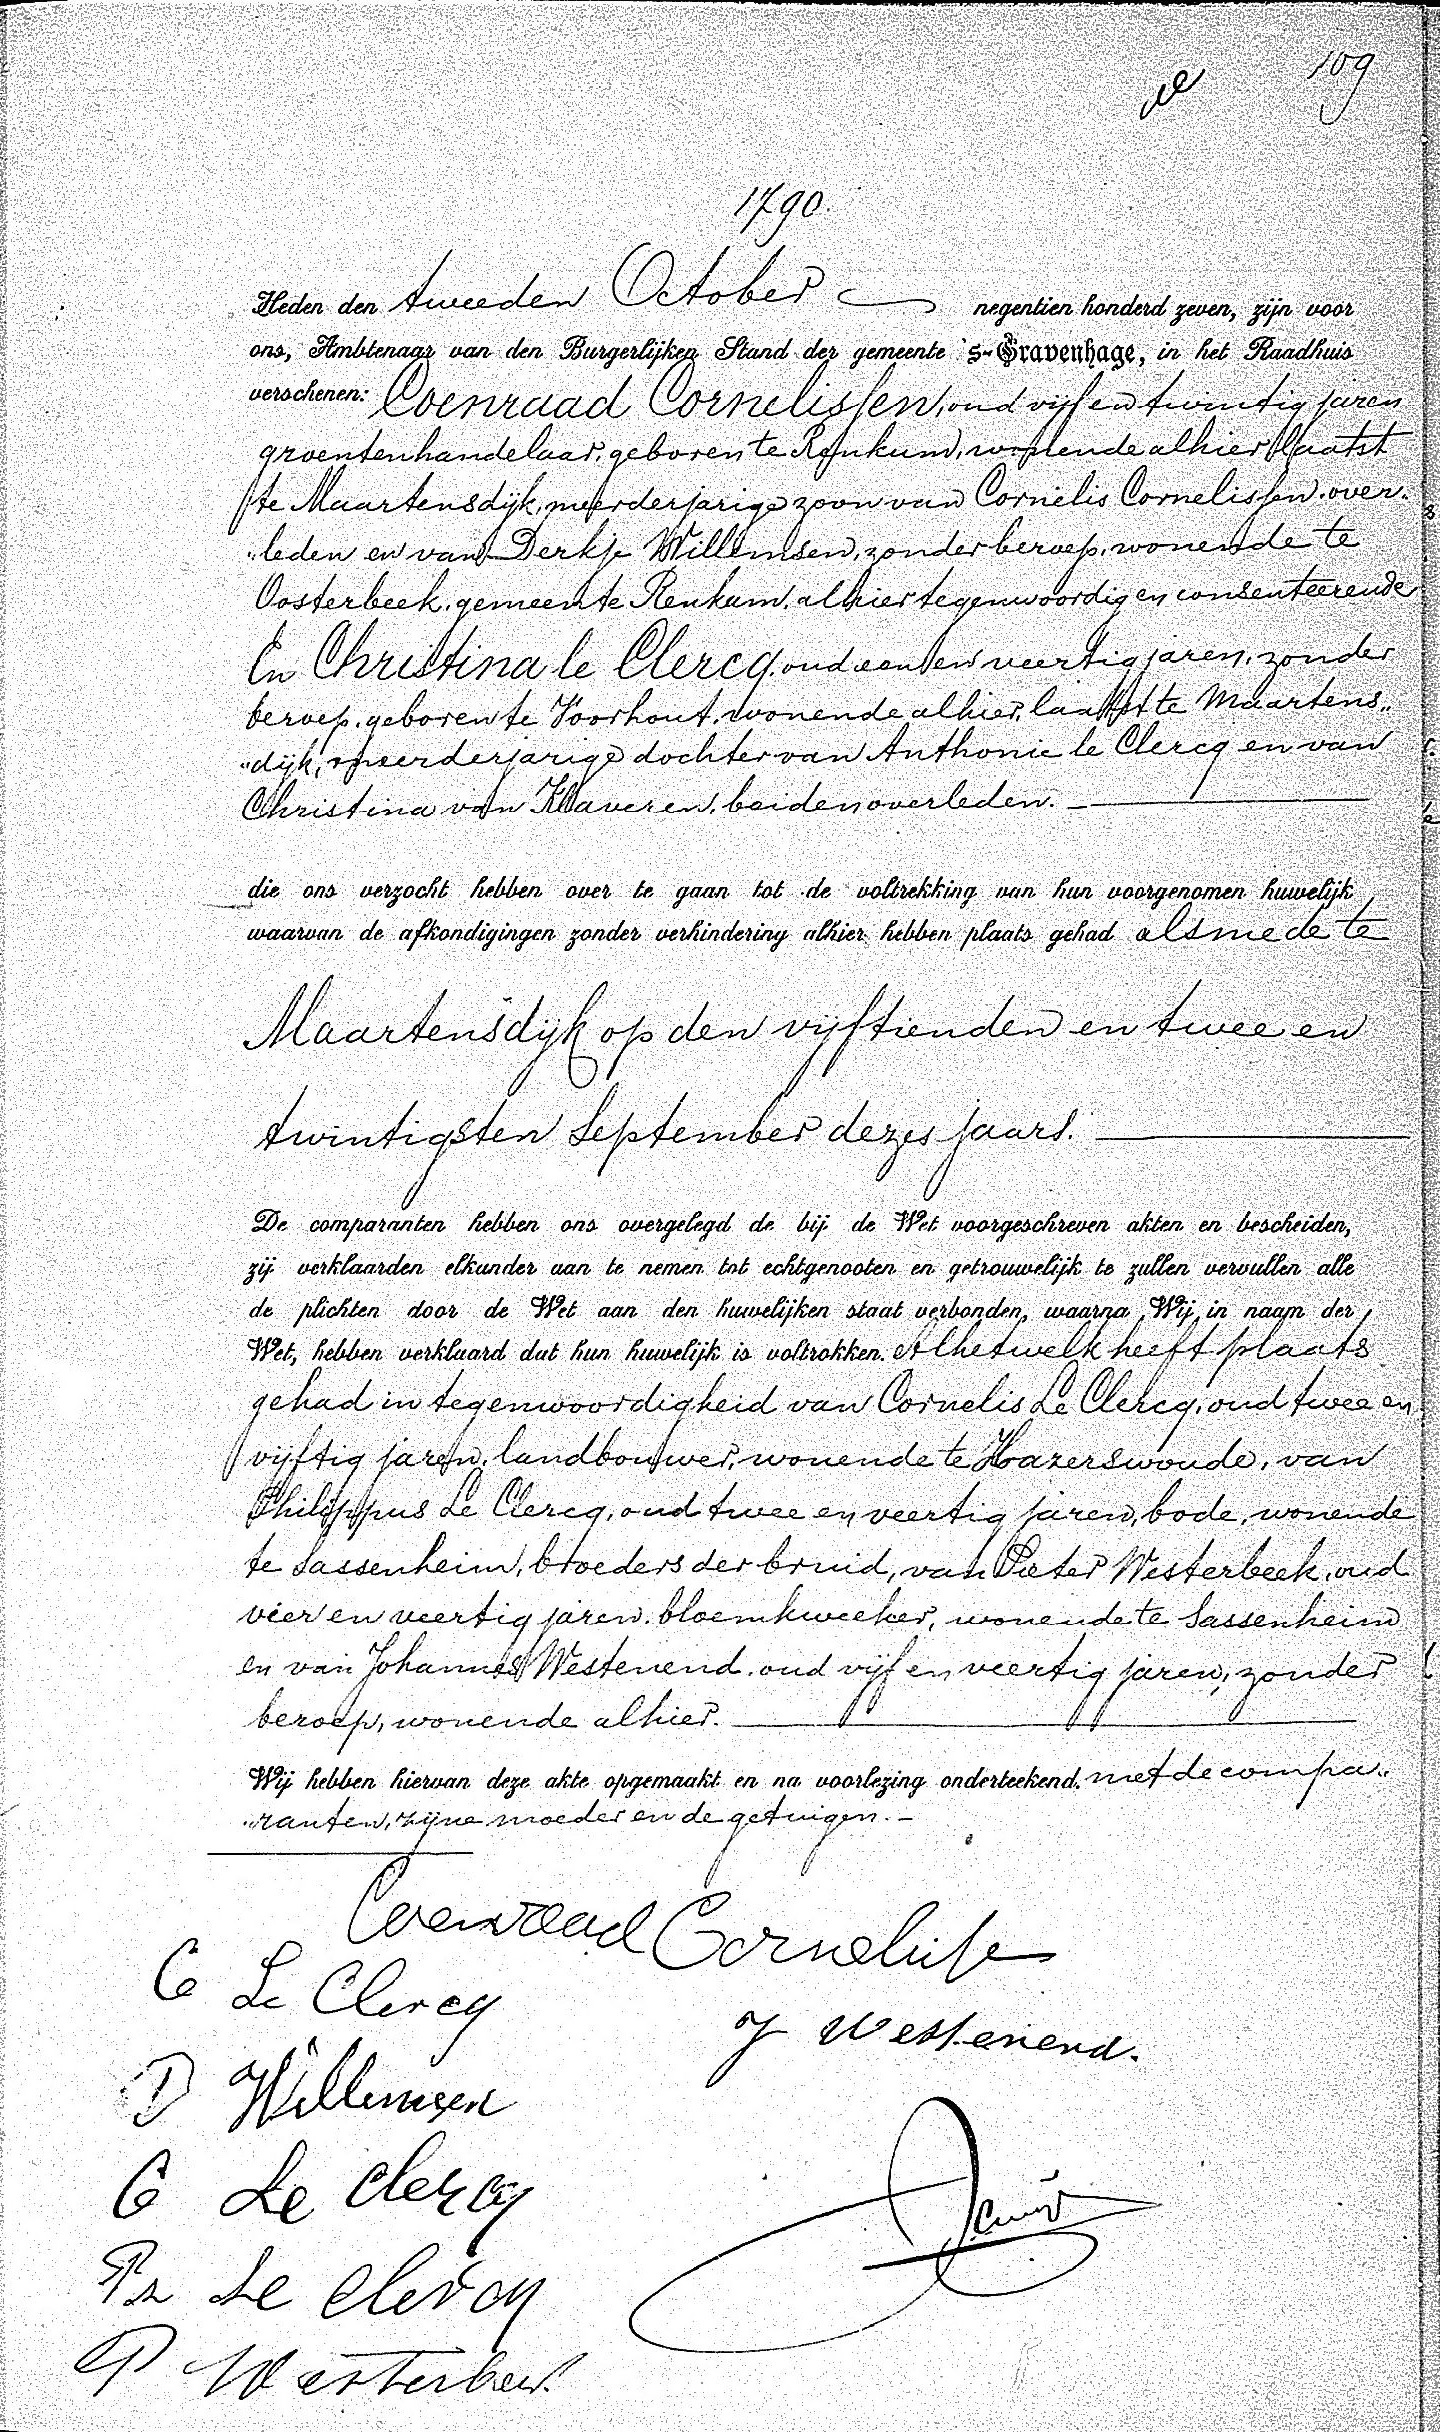 109
1790.
Heden den tweeden October negentien honderd zeven, zijn voor
ons, Ambtenaar van den Burgerlijken Stand der gemeente 's-Gravenhage, in het Raadhuis
verschenen: Coenraad Cornelissen, oud vijf en twintig jaren
groentenhandelaar, geboren te Renkum, wonende alhier, laatst
te Maartensdijk, meerderjarige zoon van Cornelis Cornelissen, over„
„leden en van Derkje Willemsen, zonder beroep, wonende te
Oosterbeek, gemeente Renkum, alhier tegenwoordig en consenteerende
En Christina le Clercq, oud een en veertig jaren, zonder
beroep, geboren te Voorhout, wonende alhier, laatst te Maartens„
„dijk, meerderjarige dochter van Anthonie le Clercq en van
Christina van Klaveren, beiden overleden.
die ons verzocht hebben over te gaan tot de voltrekking van hun voorgenomen huwelijk
waarvan de afkondigingen zonder verhindering alhier hebben plaats gehad alsmede te
Maartensdijk op den vijftienden en twee en
twintigsten September dezes jaars.
De comparanten hebben ons overgelegd de bij de Wet voorgeschreven akten en bescheiden,
zij verklaarden elkander aan te nemen tot echtgenooten en getrouwelijk te zullen vervullen alle
de plichten door de Wet aan den huwelijken staat verbonden, waarna Wij in naam der
Wet, hebben verklaard dat hun huwelijk is voltrokken. Alhetwelk heeft plaats
gehad in tegenwoordigheid van Cornelis Le Clercq, oud twee en
vijftig jaren, landbouwer, wonende te Hazerswoude, van
Philippus Le Clercq, oud twee en veertig jaren, bode, wonende
te Sassenheim, broeders der bruid, van Pieter Westerbeek, oud
vier en veertig jaren, bloemkweeker, wonende te Sassenheim
en van Johannes Westenend, oud vijf en veertig jaren, zonder
beroep, wonende alhier.
Wij hebben hiervan deze akte opgemaakt en na voorlezing onderteekend. met de compa„
„ranten, zijne moeder en de getuigen.
Coenraad Cornelisse
C Le Clercq
J Westenend.
D Willemsen
C Le Clercq
Ps Le Clercq
P Westerbeek